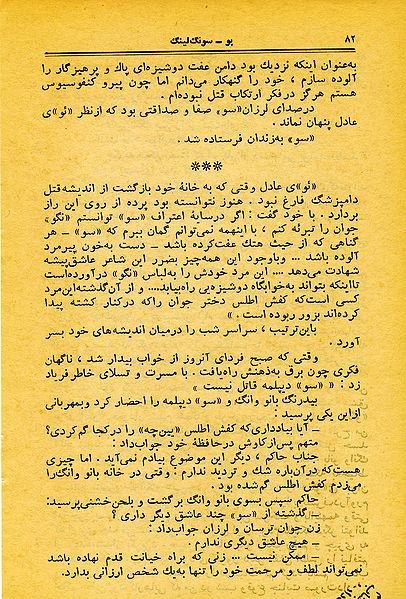 ۸۲
پو ــ سونگ‌لینگ
به‌عنوان اینکه نزدیك بود دامن عفت دوشیزه‌ای پاك و پرهیزگار را
آلوده سازم ، خود را گنهکار می‌دانم اما چون پیرو کنفوسیوس
هستم هرگز در فکر ارتکاب قتل نبوده‌ام .
درصدای لرزان «سو» صفا و صداقتی بود که ازنظر «ئو»ی
عادل پنهان نماند .
«سو» به‌زندان فرستاده شد .
***
«ئو»ی عادل وقتی که به خانهٔ خود بازگشت از اندیشه‌قتل
دامپزشگ فارغ نبود . هنوز نتوانسته بود پرده از روی این راز
بردارد . با خود گفت : اگر درسایهٔ اعتراف «سو» توانستم «نگو»
را تبرئه کنم ، با اینهمه نمی‌توانم گمان ببرم که «سو» ــ هر
گناهی که از حیث هتك عفت‌کرده باشد ــ دست به‌خون پیرمرد
آلوده باشد ... وباوجود این همه‌چیز بضرر این شاعر عاشق‌پیشه
شهادت می‌دهد .... این مرد خودش را به‌لباس «نگو» درآورده‌است
تااینکه بتواند به‌خوابگاه دوشیزه‌یی راه‌بیابد.... و از آن‌گذشته‌این‌مرد
کسی است‌که کفش اطلس دختر جوان راکه درکنار کشته پیدا
کرده‌اند بزور ربوده است . »
باین‌ترتیب ، سراسر شب را درمیان اندیشه‌های خود بسر
آورد .
وقتی که صبح فردای آنروز از خواب بیدار شد ، ناگهان
فکری چون برق به‌ذهنش راه‌یافت . با مسرت و تسلای خاطر فریاد
زد : « «سو» دیپلمه قاتل نیست »
بیدرنگ بانو وانگ و «سو» دیپلمه را احضار کرد وبمهربانی
ازاین یکی پرسید :
ــ آیا بیادداری‌که کفش اطلس «یین‌چه» را درکجا گم‌کردی؟
متهم پس‌ازکاوش درحافظهٔ خود جواب‌داد :
جناب حاکم ، دیگر این موضوع بیادم نمی‌آید . اما چیزی
هست‌که درآن‌باره شك و تردید ندارم : وقتی در خانه بانو وانگ‌را
می‌زدم کفش اطلس گم‌شده بود .
حاکم سپس بسوی بانو وانگ برگشت و بلحن‌خشنی‌پرسید:
ــ گذشته از «سو» چند عاشق دیگر داری ؟
زن‌جوان ترسان و لرزان جواب‌داد :
ــ هیچ عاشق دیگری ندارم .
ــ ممکن نیست ... زنی که براه خیانت قدم نهاده باشد
نمی‌تواند لطف و مرحمت خود را تنها به‌یك شخص ارزانی بدارد.